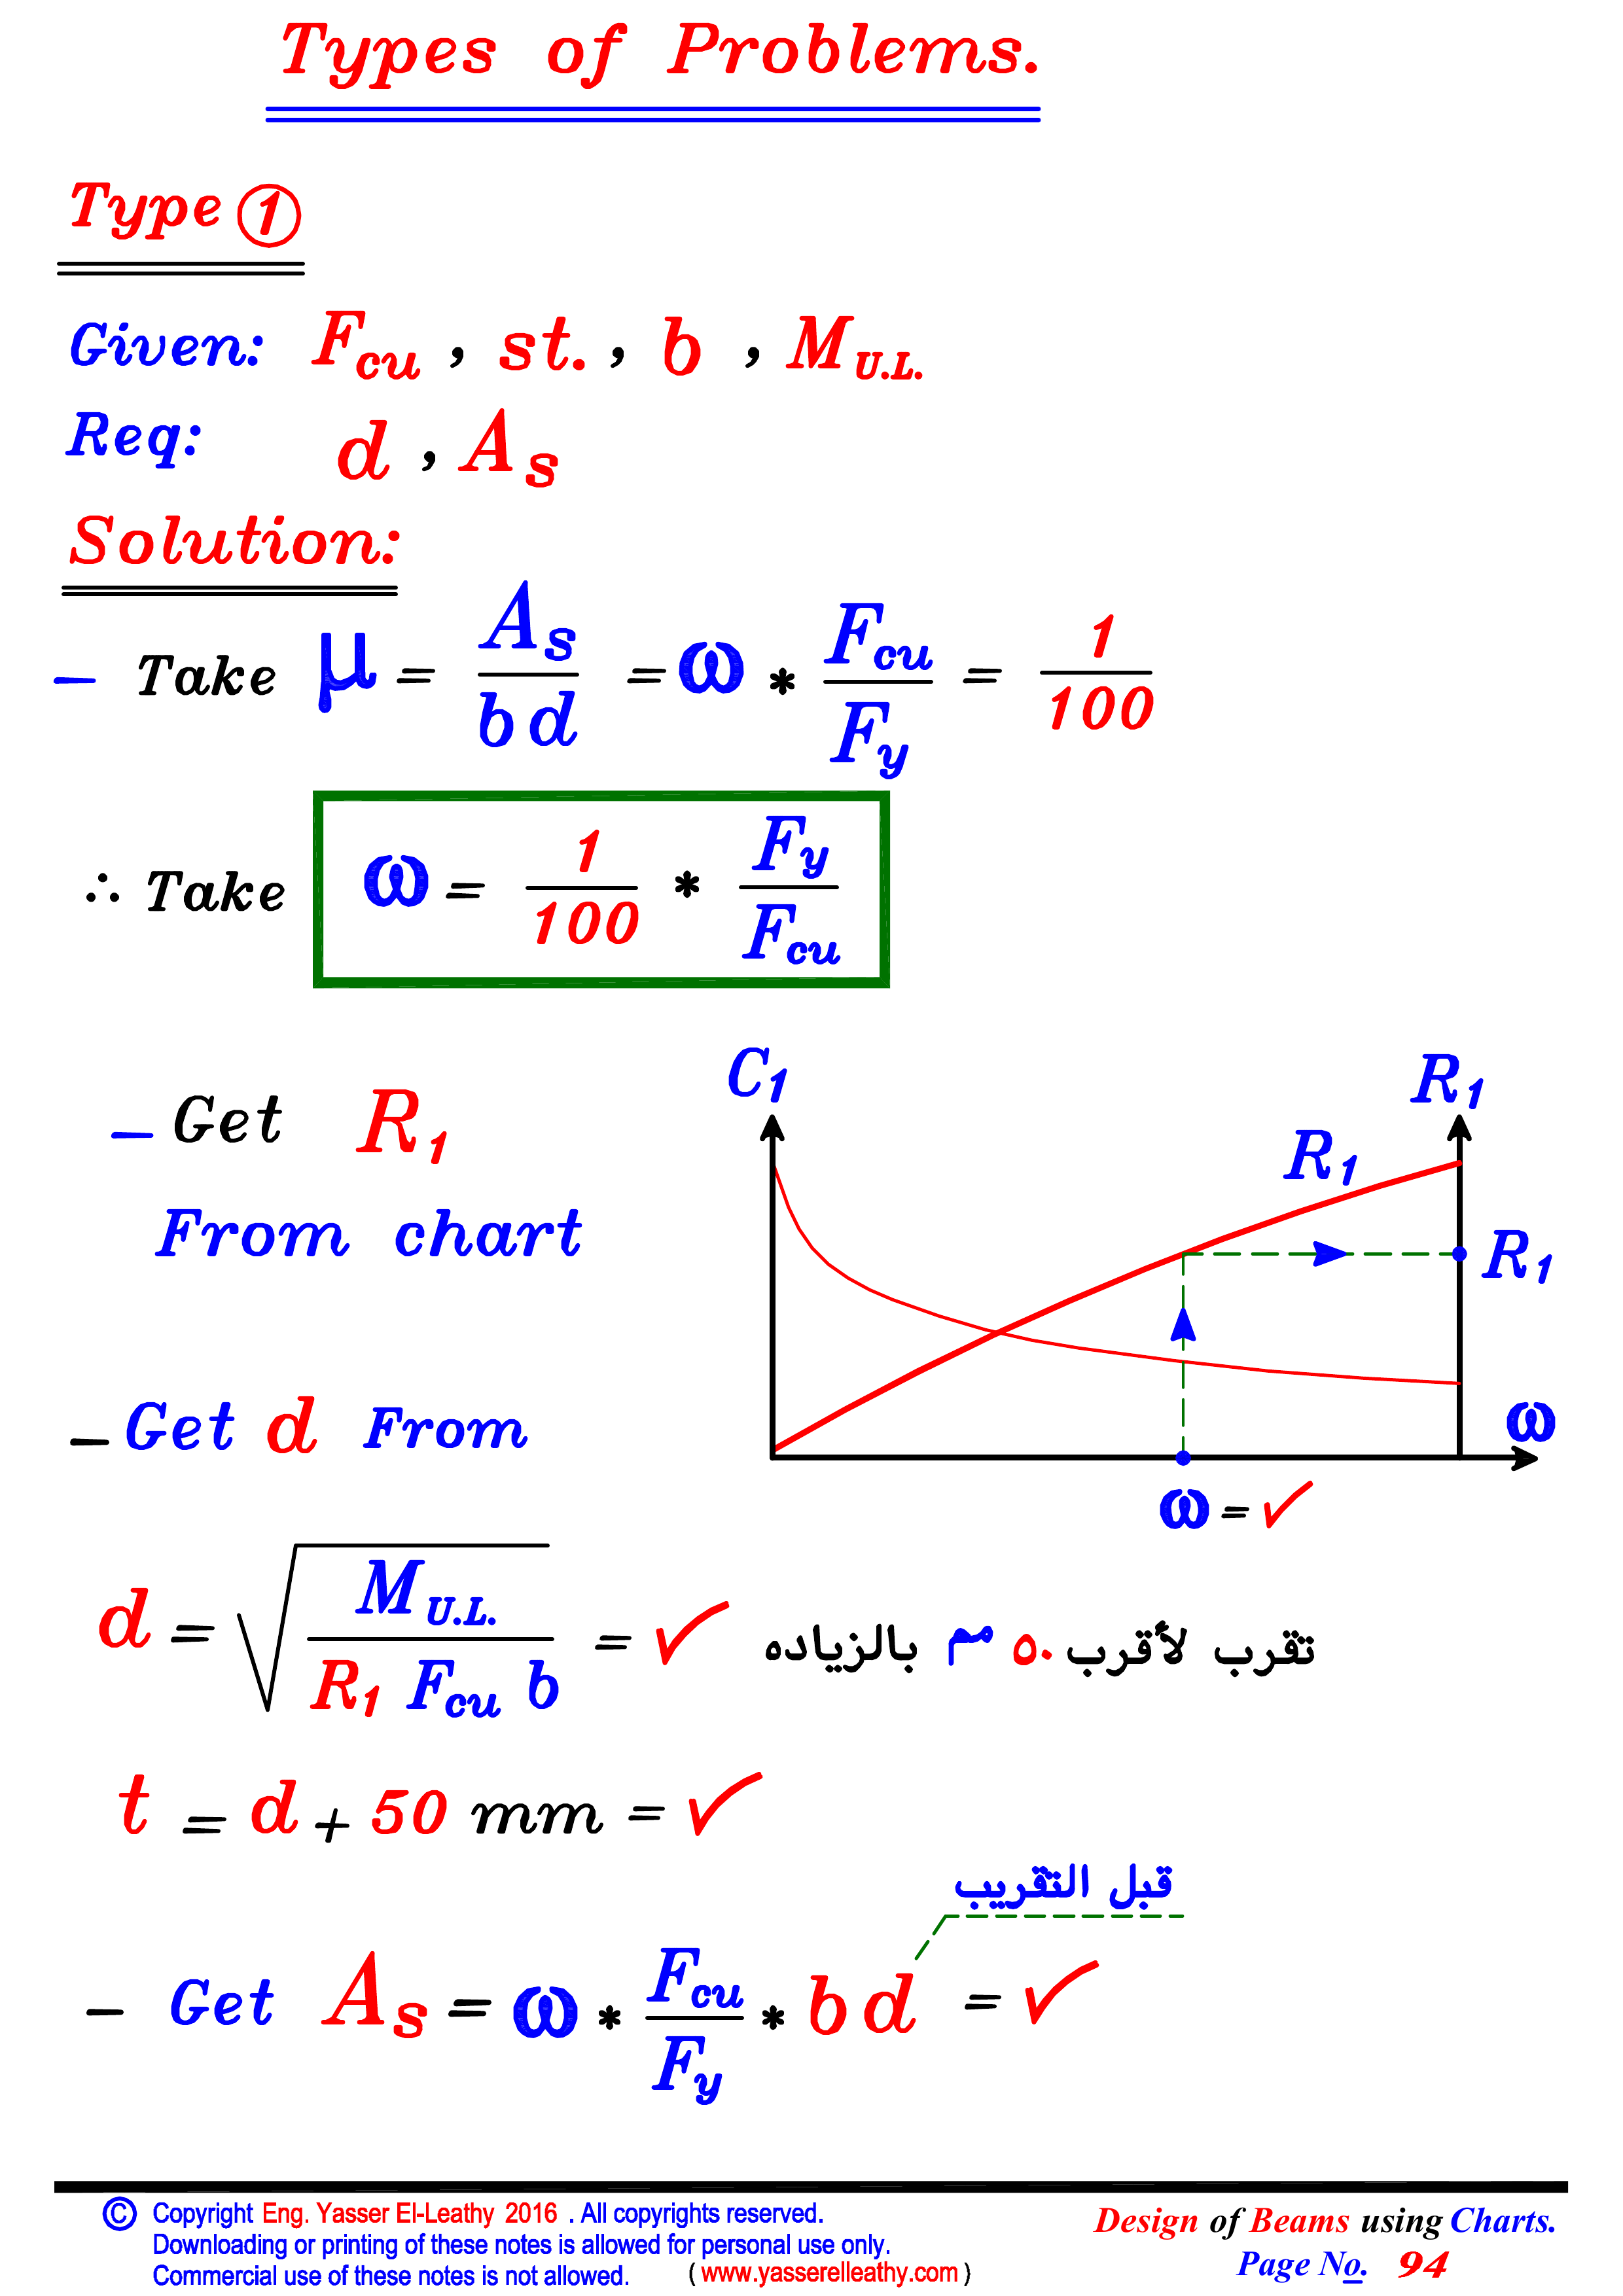 Types of Problems.
Type ①
Given: F_cu , st. , b , M_U.L.
Req: d , A_s
Solution:
- Take μ = A_s / b d = ω * F_cu / F_y = 1 / 100
∴ Take ω = 1 / 100 * F_y / F_cu
- Get R_1
From chart
C_1
R_1
R_1
R_1
ω
ω = ✓
- Get d From
d = √( M_U.L. / R_1 F_cu b ) = ✓ تقرب لأقرب ٥٠ مم بالزياده
t = d + 50 mm = ✓
قبل التقريب
- Get A_s = ω * F_cu / F_y * b d = ✓
© Copyright Eng. Yasser El-Leathy 2016 . All copyrights reserved.
Downloading or printing of these notes is allowed for personal use only.
Commercial use of these notes is not allowed. ( www.yasserelleathy.com )
Design of Beams using Charts.
Page No. 94